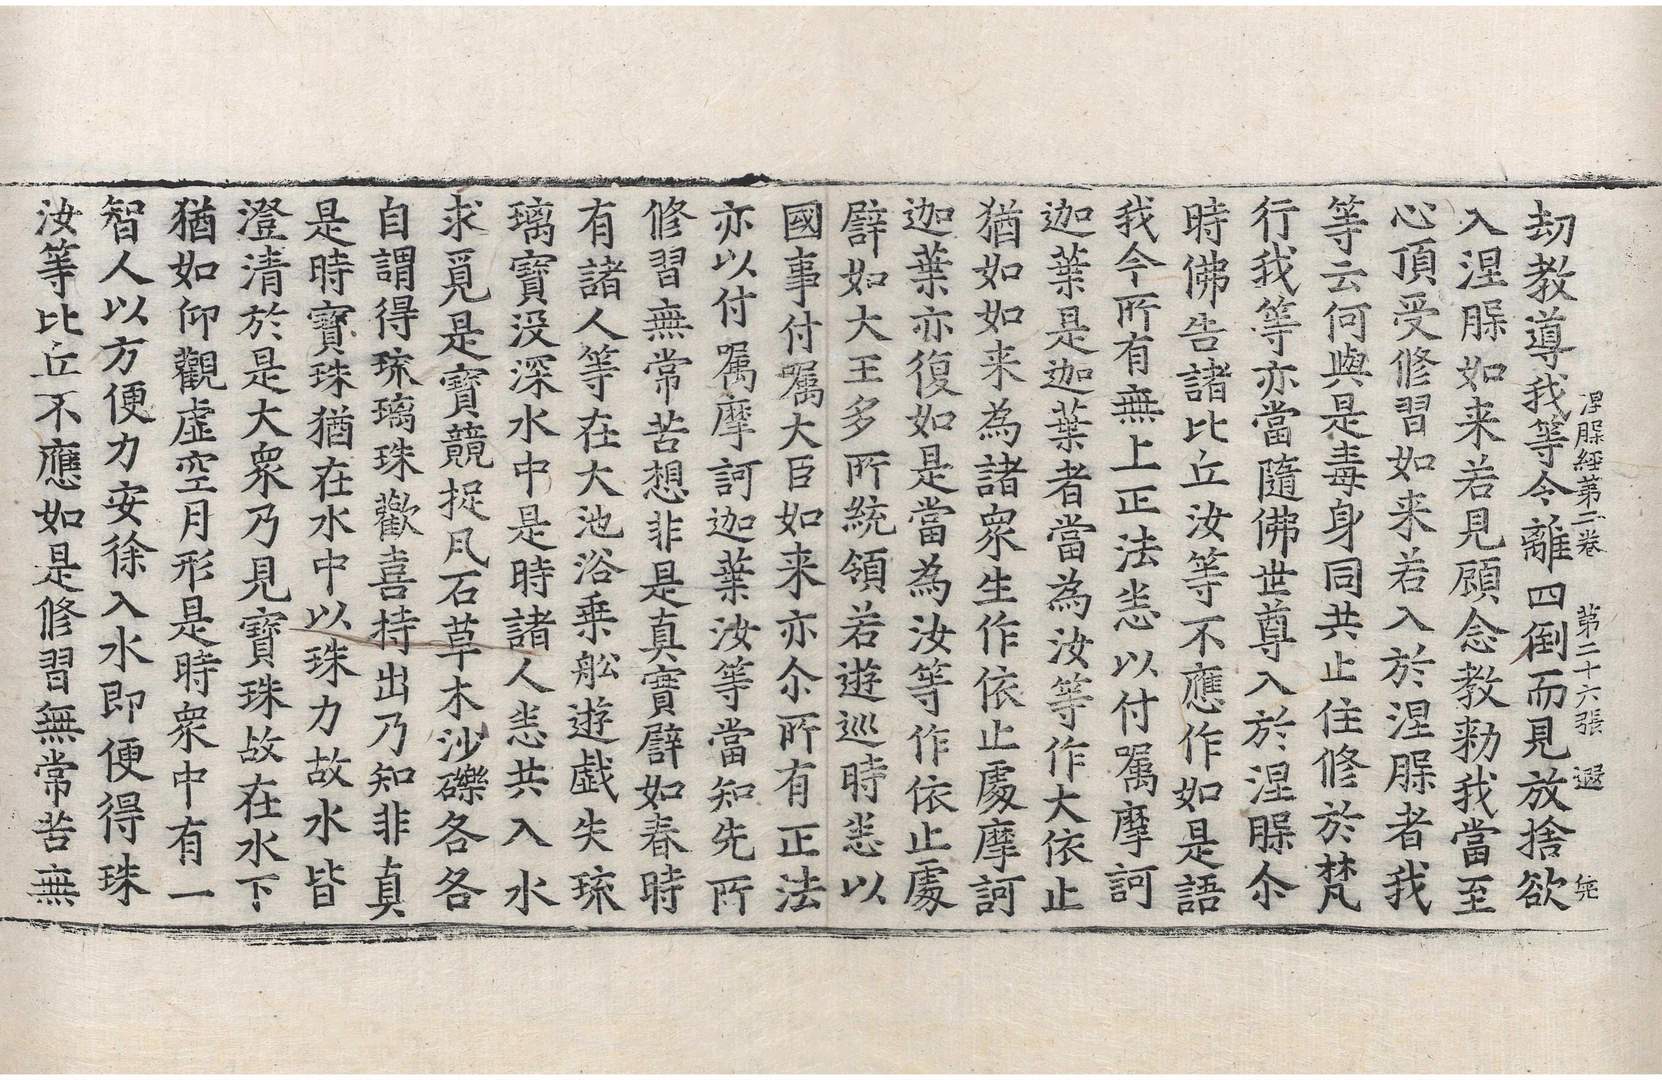 涅槃経第二卷　第二十六張　遐　㐬
劫教導我等令離四倒而見放捨欲
入涅槃如来若見顧念教勑我當至
心頂受修習如来若入於涅槃者我
等云何與是毒身同共止住修於梵
行我等亦當隨佛世尊入於涅槃尒
時佛告諸比丘汝等不應作如是語
我今所有無上正法悉以付嘱摩訶
迦葉是迦葉者當為汝等作大依止
猶如如来為諸衆生作依止處摩訶
迦葉亦復如是當為汝等作依止處
譬如大王多所統領若遊巡時悉以
國事付嘱大臣如来亦尒所有正法
亦以付嘱摩訶迦葉汝等當知先所
修習無常苦想非是真實譬如春時
有諸人等在大池浴乗舩遊戯失琉
璃寶没深水中是時諸人悉共入水
求覓是寶競捉凡石草木沙礫各各
自謂得琉璃珠歡喜持出乃知非真
是時寶珠猶在水中以珠力故水皆
澄清於是大衆乃見寶珠故在水下
猶如仰觀虛空月形是時衆中有一
智人以方便力安徐入水即便得珠
汝等比丘不應如是修習無常苦無